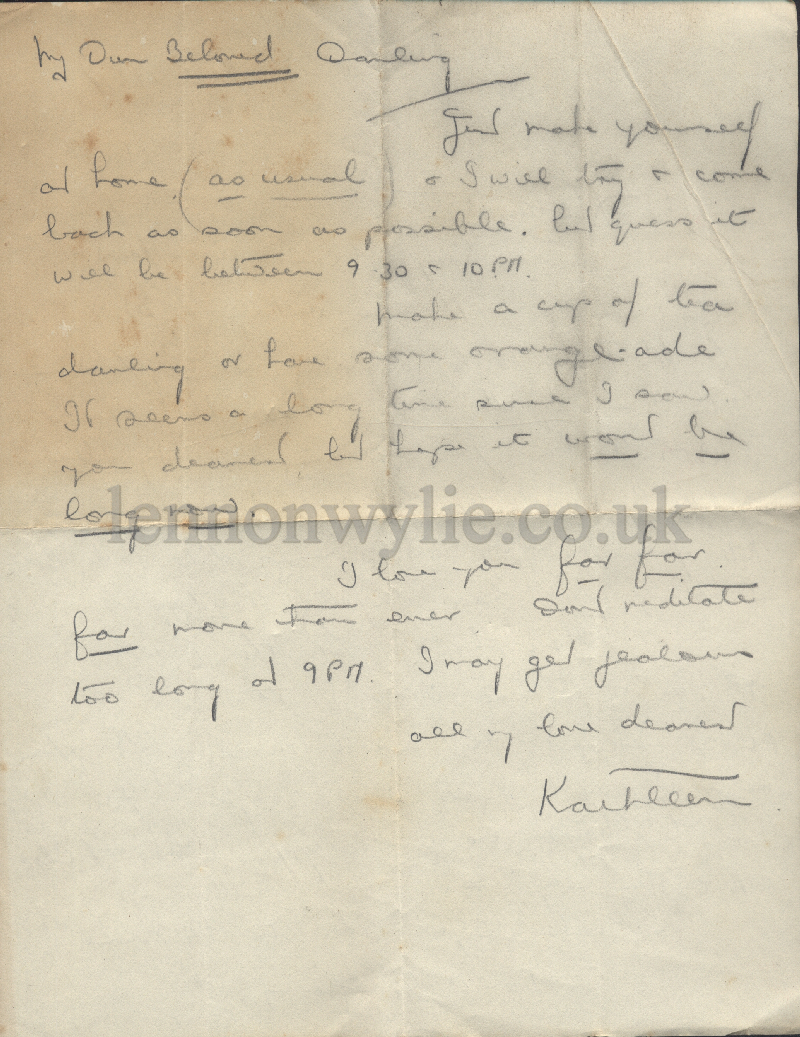 My Own Beloved Darling
Just make yourself
at home (as usual) & I will try & come
back as soon as possible. but guess it
will be between 9.30 & 10 PM.
make a cup of tea
darling or have some orange-ade
It seems a long time since I saw
you dearest, but hope it wont be
long now.
lennonwylie.co.uk
I love you far far
far more than ever. Dont meditate
too long at 9 PM. I may get jealous
all my love dearest
Kathleen